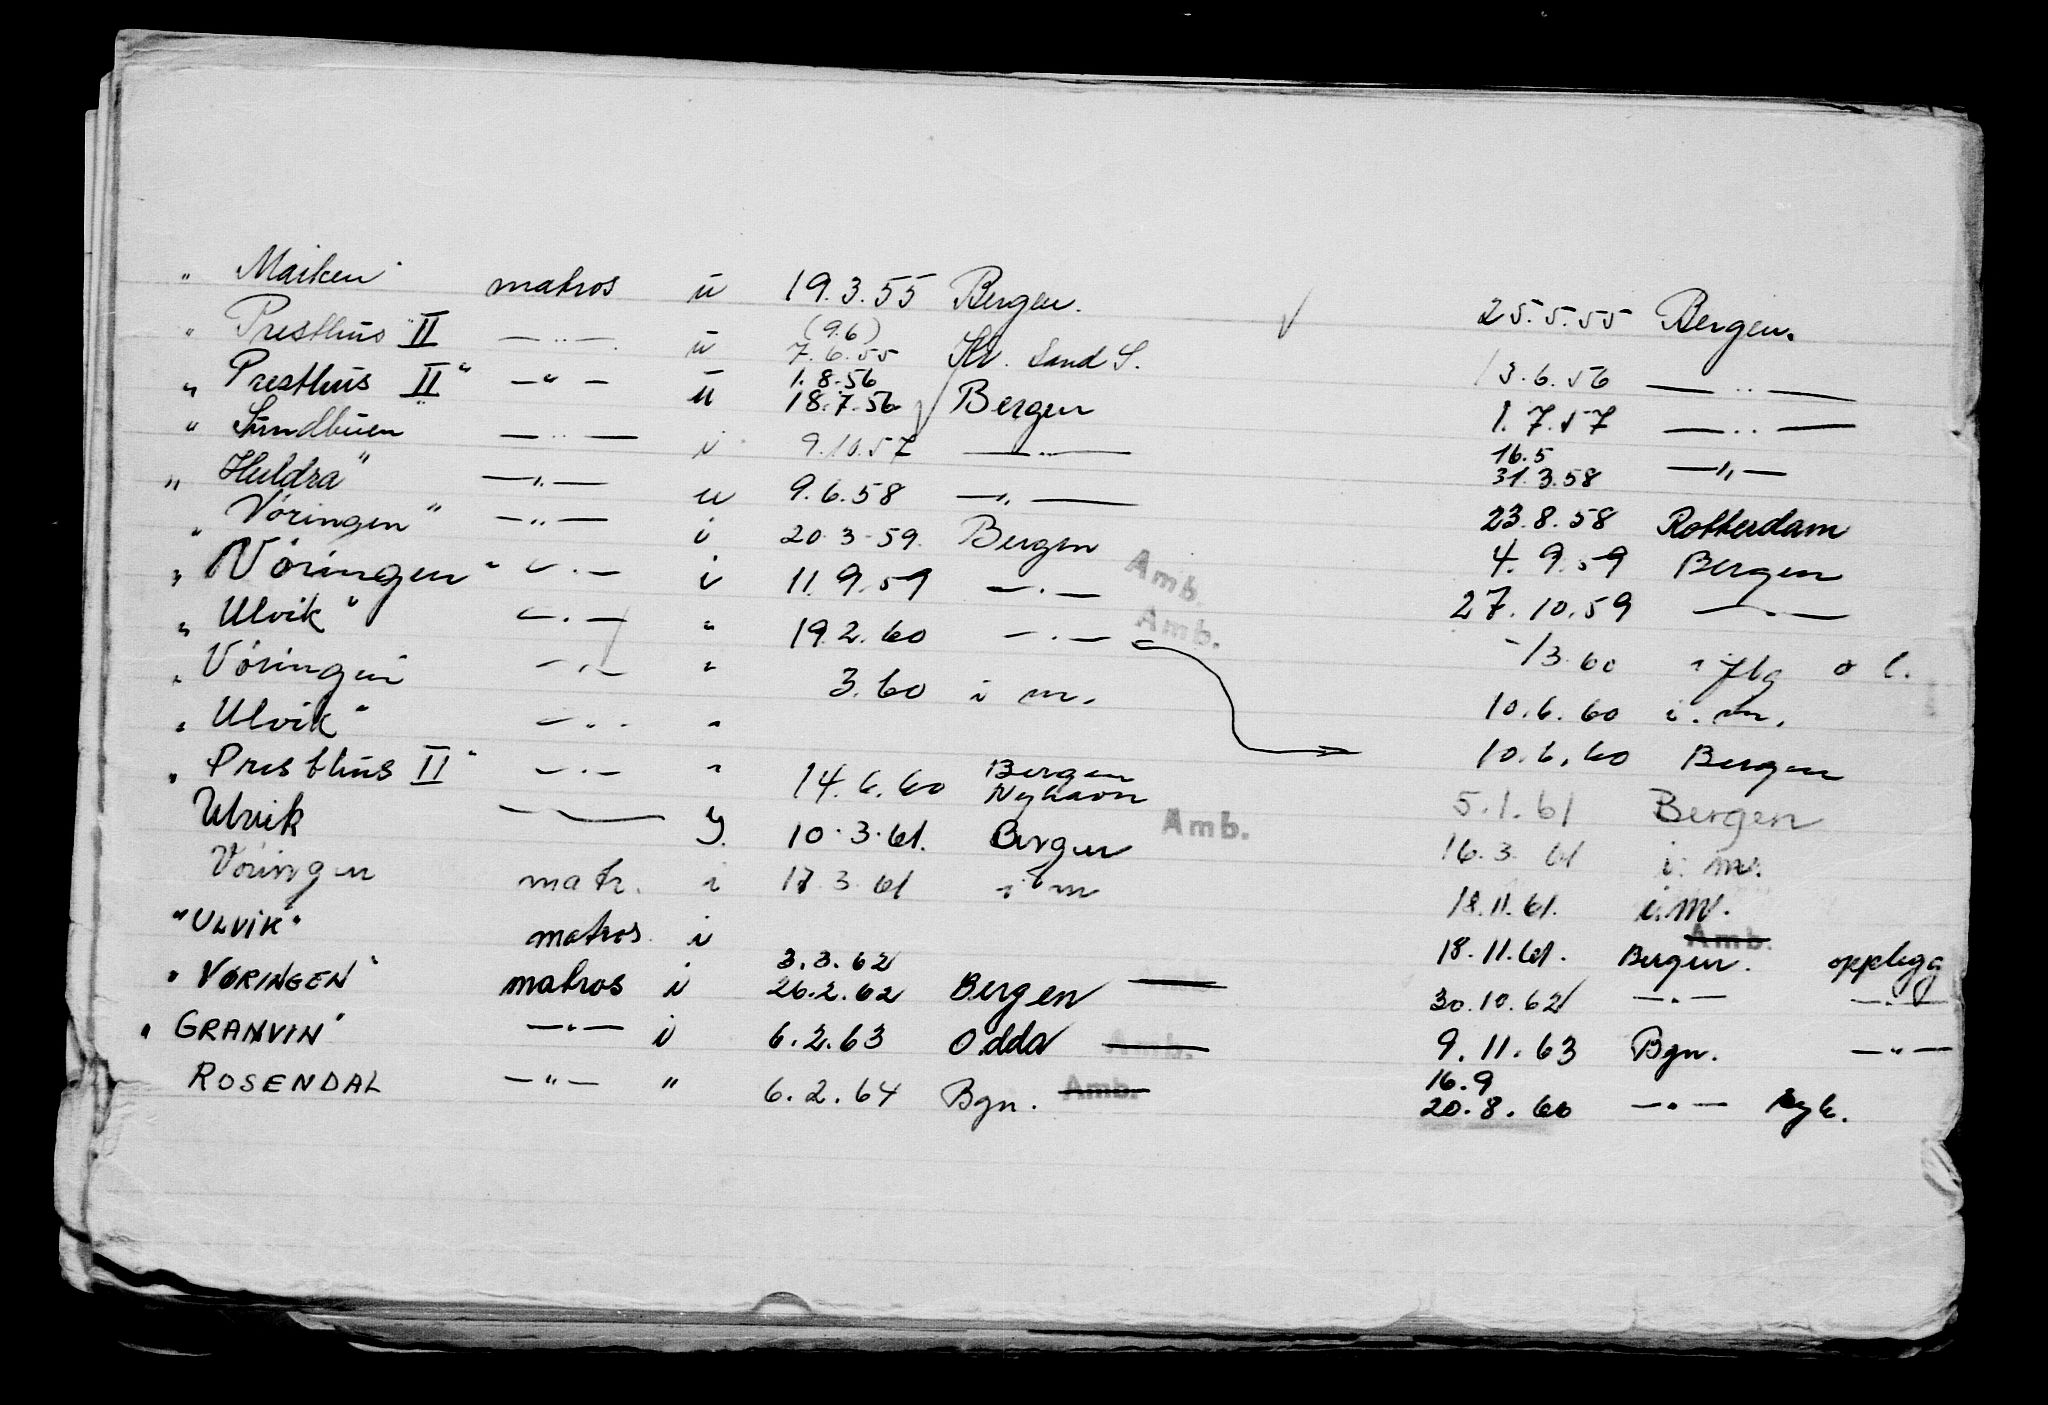 " Maiken" matros u 19.3.55 Bergen. 25.5.55 Bergen.
" Presthus II — " — u (9.6) 7.6.55 Kr. Sand S. 13.6.56 — " —
" Presthus II" — " — u 1.8.56 18.7.56 Bergen 1.7.57 — " —
" Sundbuen — " — i 9.10.57 — " — 16.5 31.3.58 — " —
" Huldra" — " — u 9.6.58 — " — 23.8.58 Rotterdam
" Vøringen" — " — i 20.3.59. Bergen Amb. 4.9.59 Bergen
" Vöringen" — " — i 11.9.59 — " — Amb. 27.10.59 — " —
" Ulvik" — " — " 19.2.60 — " — -/3.60
" Vöringen — " — " 3.60 i m. 10.6.60 i. m.
" Ulvik" — " — " 10.6.60 Bergen
" Presthus II" — " — " 14.6.60 Bergen Nyhavn 5.1.61 Bergen
Ulvik — 10.3.61. Bergen Amb. 16.3.61 i. m.
Vöringen matr. i 17.3.61 i m 18.11.61. i.m.
"ULVIK" matros i Amb. 18.11.61. Bergen. opplegg
" VØRINGEN" matros i 3.3.62 26.2.62 Bergen — 30.10.62 — " — — " —
" GRANVIN" — " — i 6.2.63 Odda Amb. 9.11.63 Bgn. — " —
ROSENDAL — " — " 6.2.64 Bgn. Amb. 16.9 20.8.66 — " — syk.